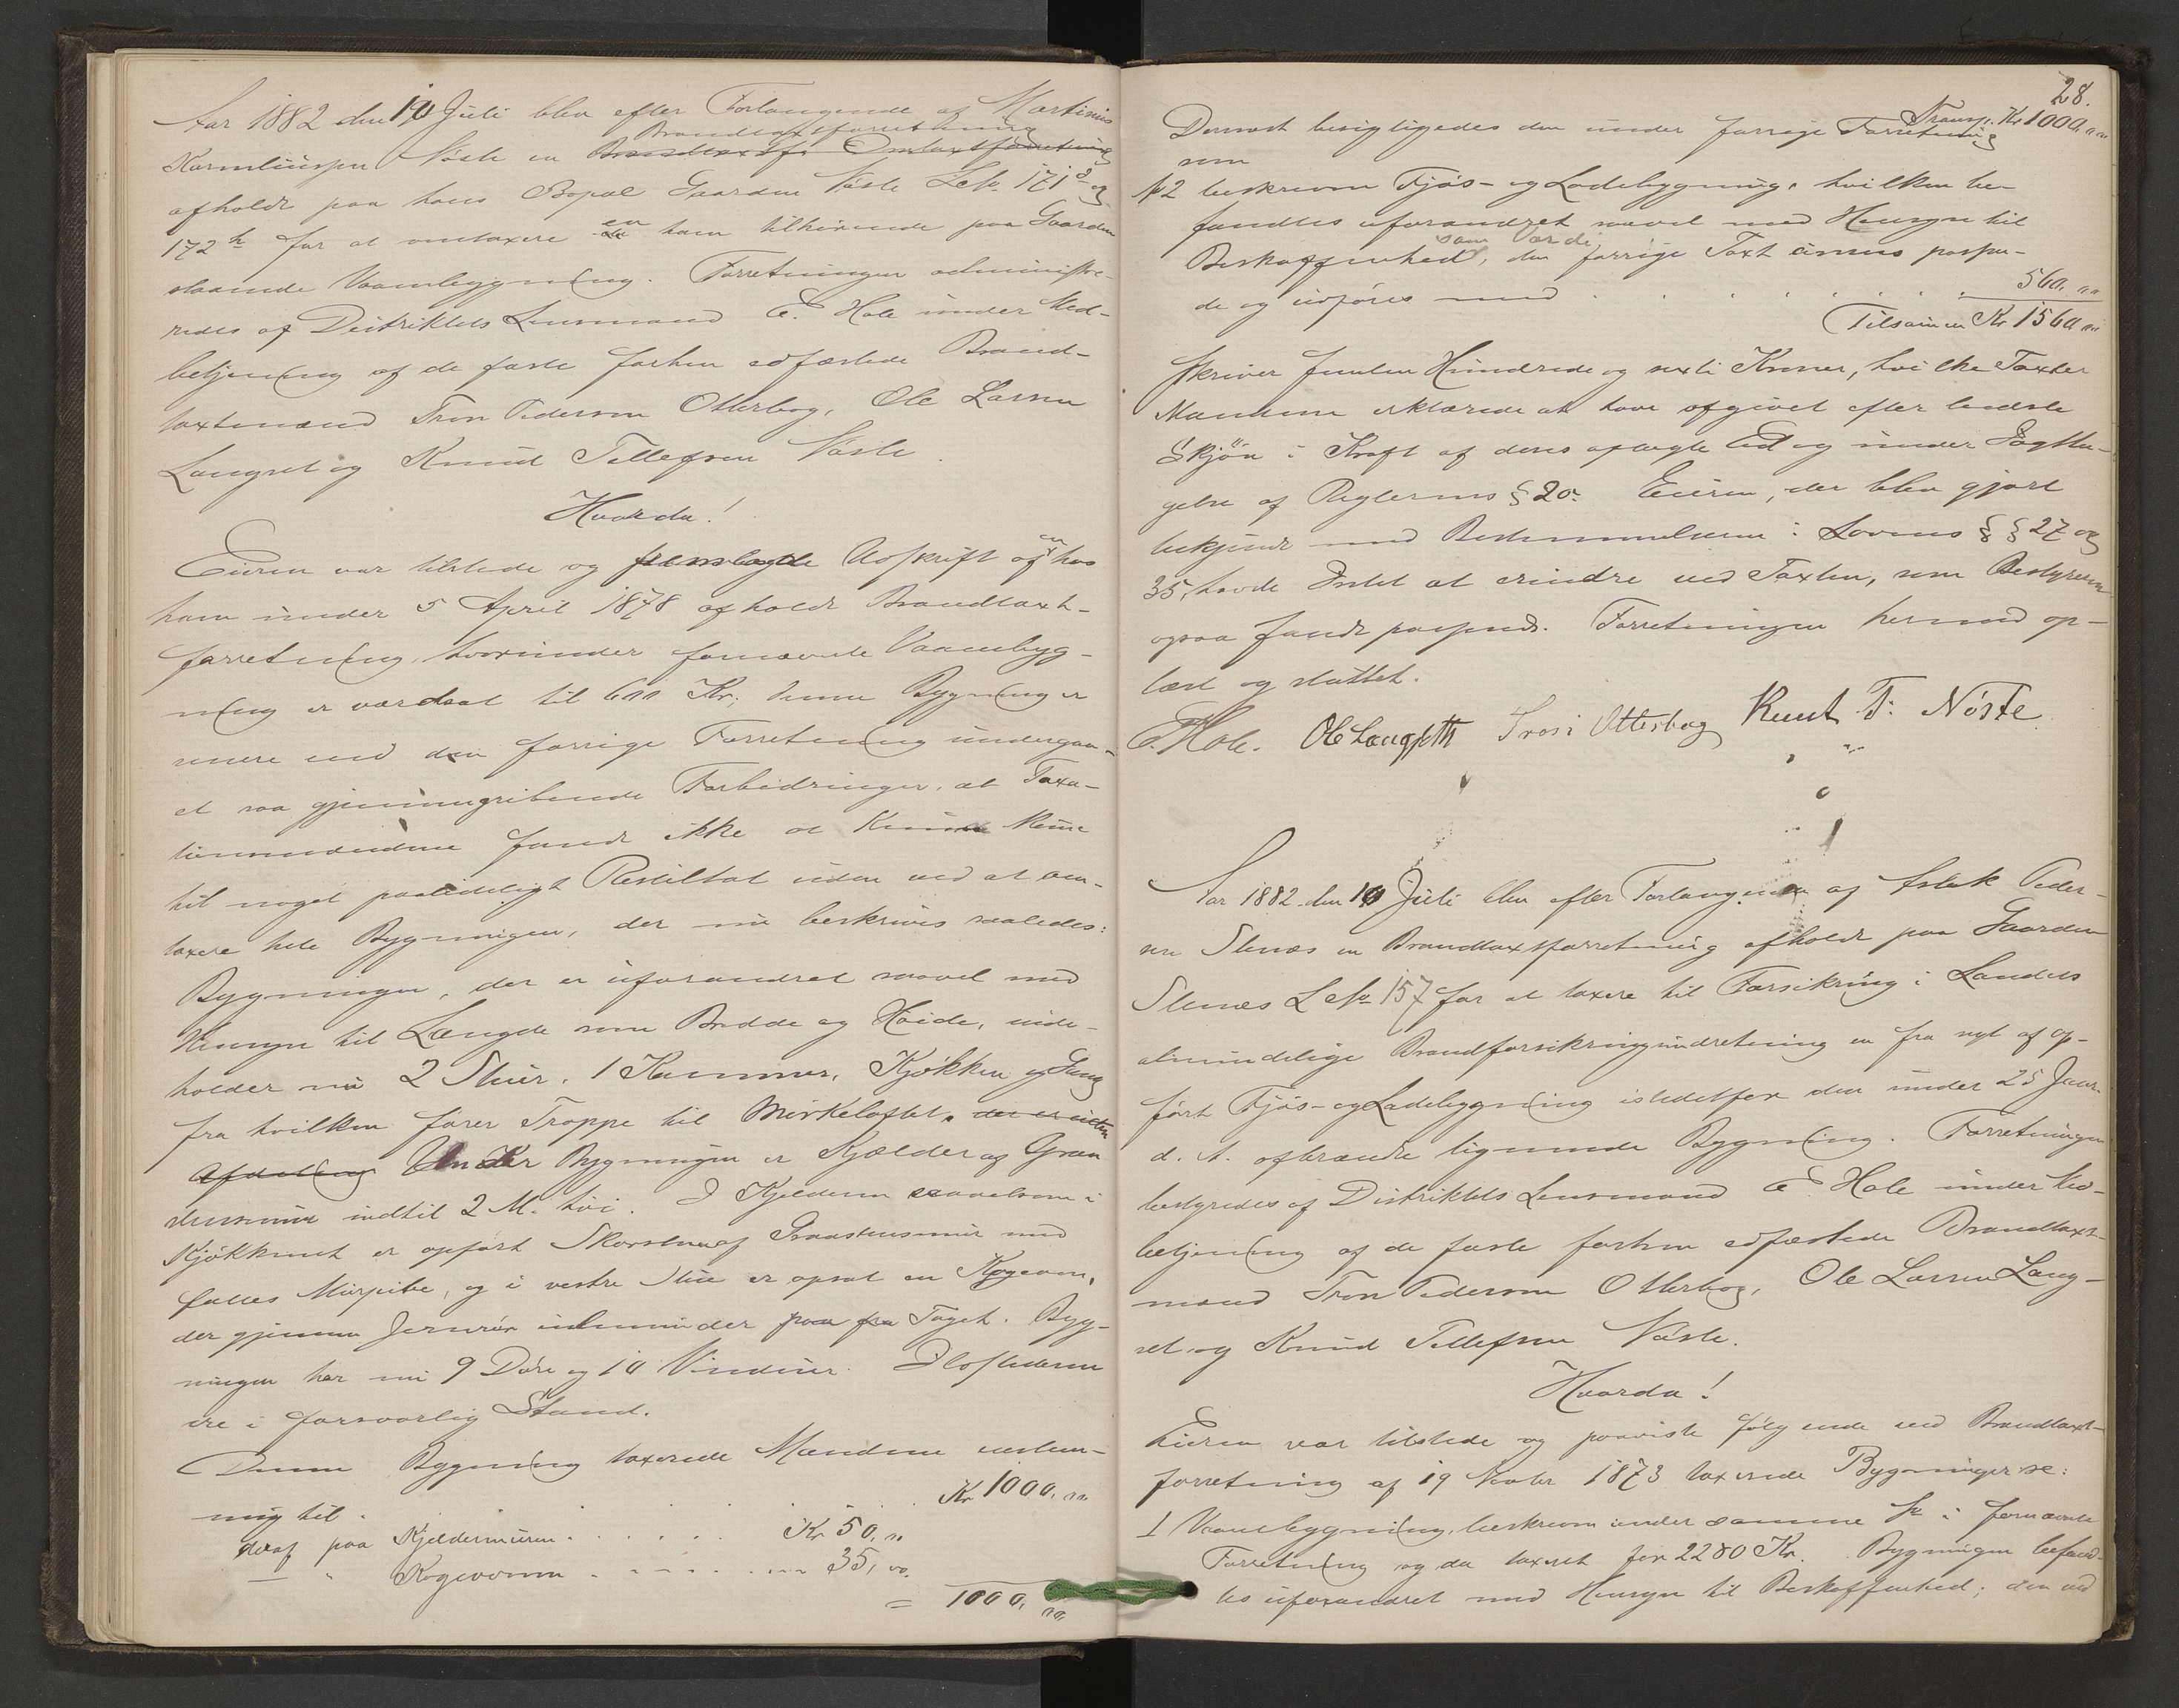 Aar 1882 den 10 Juli blev efter Forlangende af Martinius
Brandtaxtforretning
Karmliusen Nøste en Brandtaxtf. Omtaxtforretning
afholdt paa hans Bopæl Gaarden Nøste L.№ 171 og
172 b for at omtaxere en ham tilhørende paa Gaarden
staaende Vaanebygning. Forretningen administre-
redes af Distriktets Lensmand E. Hole under Med-
betjening af de faste forhen edfæstede Brand-
taxtmænd Tron Pedersen Otterbog, Ole Larsen
Langset og Knud Tellefsen Nøste.
Hvorda!
Eieren var tilstede og fremlagde Udskrift af en hos
ham under 5 April 1878 afholdt Brandtaxt-
forretning, hvorunder fornævnte Vaanebyg-
ning er værdsat til 600 Kr; denne Bygning er
senere end den forrige Forretning undergaa-
et saa gjennemgribende Forbedringer, at Taxa-
tionsmændene fandt ikke at kunne komme
til noget paalideligt Resultat uden ved at om-
taxere hele Bygningen, der nu beskrives saaledes:
Bygningen, der er uforandret saavel med
Hensyn til Længde som Bredde og Høide, inde-
holder nu 2 Stuer, 1 Kammer, Kjøkken og Gang
fra hvilken fører Trappe til Mørkeloftet, der er uden
Afdeling Under Bygningen er Kjælder af Graa
stensmur indtil 2 M. høi. I Kjelderen saavelsom i
Kjøkkenet er opført Skorsten af Graastensmur med
fælles Murpibe, og i vestre Stue er opsat en Kogeovn,
der gjennem Jernrør udmunder paa fra Taget. Byg-
ningen har nu 9 Døre og 10 Vinduer. Ildstederne
ere i forsvarlig Stand.
Denne Bygning taxerede Mændene enstem-
mig til . . . . . . . Kr 1000,00
deraf paa Kjeldermuren . . . . . Kr 50,00
— " Kogeovnen . . . . . 35,00
= 1000,00
28.
Transp. Kr 1000,00
Dernæst besigtigedes den under forrige Forretning
som
№ 2 beskrevne Fjøs- og Ladebygning, hvilken be-
fandtes uforandret saavel med Hensyn til
som Værdi
Beskaffenhed, den forrige Taxt ansees passen-
de og udføres med . . . . . . . 560,00
Tilsammen Kr 1560,00
skriver femten Hundrede og sexti Kroner, hvilke Taxter
Mændene erklærede at have afgivet efter bedste
Skjøn i Kraft af deres aflagte Ed og under Iagtta-
gelse af Reglernes § 20. Eieren, der blev gjort
bekjendt med Bestemmelserne i Lovens §§ 27 og
35, havde Intet at erindre ved Taxten, som Bestyreren
ogsaa fandt passende. Forretningen hermed op-
læst og sluttet.
E. Hole. Ole Langseth Tron Otterbog Knut T. Nøste
Aar 1882 den 10 Juli blev efter Forlangende af Aslak Peder-
sen Stenæs en Brandtaxtforretning afholdt paa Gaarden
Stenæs L.№ 157 for at taxere til Forsikring i Landets
almindelige Brandforsikringsindretning en fra nyt af op-
ført Fjøs- og Ladebygning istedetfor den under 25 Janr.
d. A. afbrændte lignende Bygning. Forretningen
bestyredes af Distriktets Lensmand E. Hole under Med-
betjening af de faste forhen edfæstede Brandtaxt-
mænd Tron Pedersen Otterbog, Ole Larsen Lang-
set og Knud Tellefsen Nøste.
Hvorda!
Eieren var tilstede og paaviste følgende ved Brandtaxt-
forretning af 19 Novbr 1873 taxerede Bygninger se:
1 Vaanebygning, beskreven under samme № i fornævnte
Forretning og da taxeret for 2280 Kr. Bygningen befand-
tes uforandret med Hensyn til Beskaffenhed; den ved